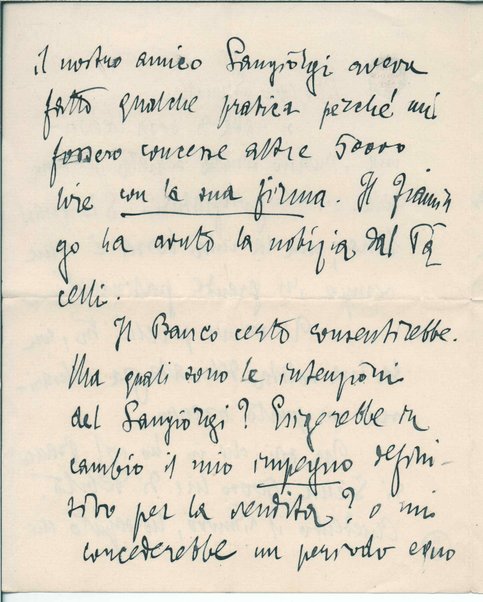 il nostro amico Sangiòrgi aveva
fatto qualche pratica perché mi
fossero concesse altre 50000
lire con la sua firma. Il
go ha avuto la notizia dal Ta
celli.
Il Banco certo consentirebbe.
Ma quali sono le intenzioni
del Sangiòrgi? Esigerebbe in
cambio il mio impegno defini-
tivo per la vendita? o mi
concederebbe un periodo equo